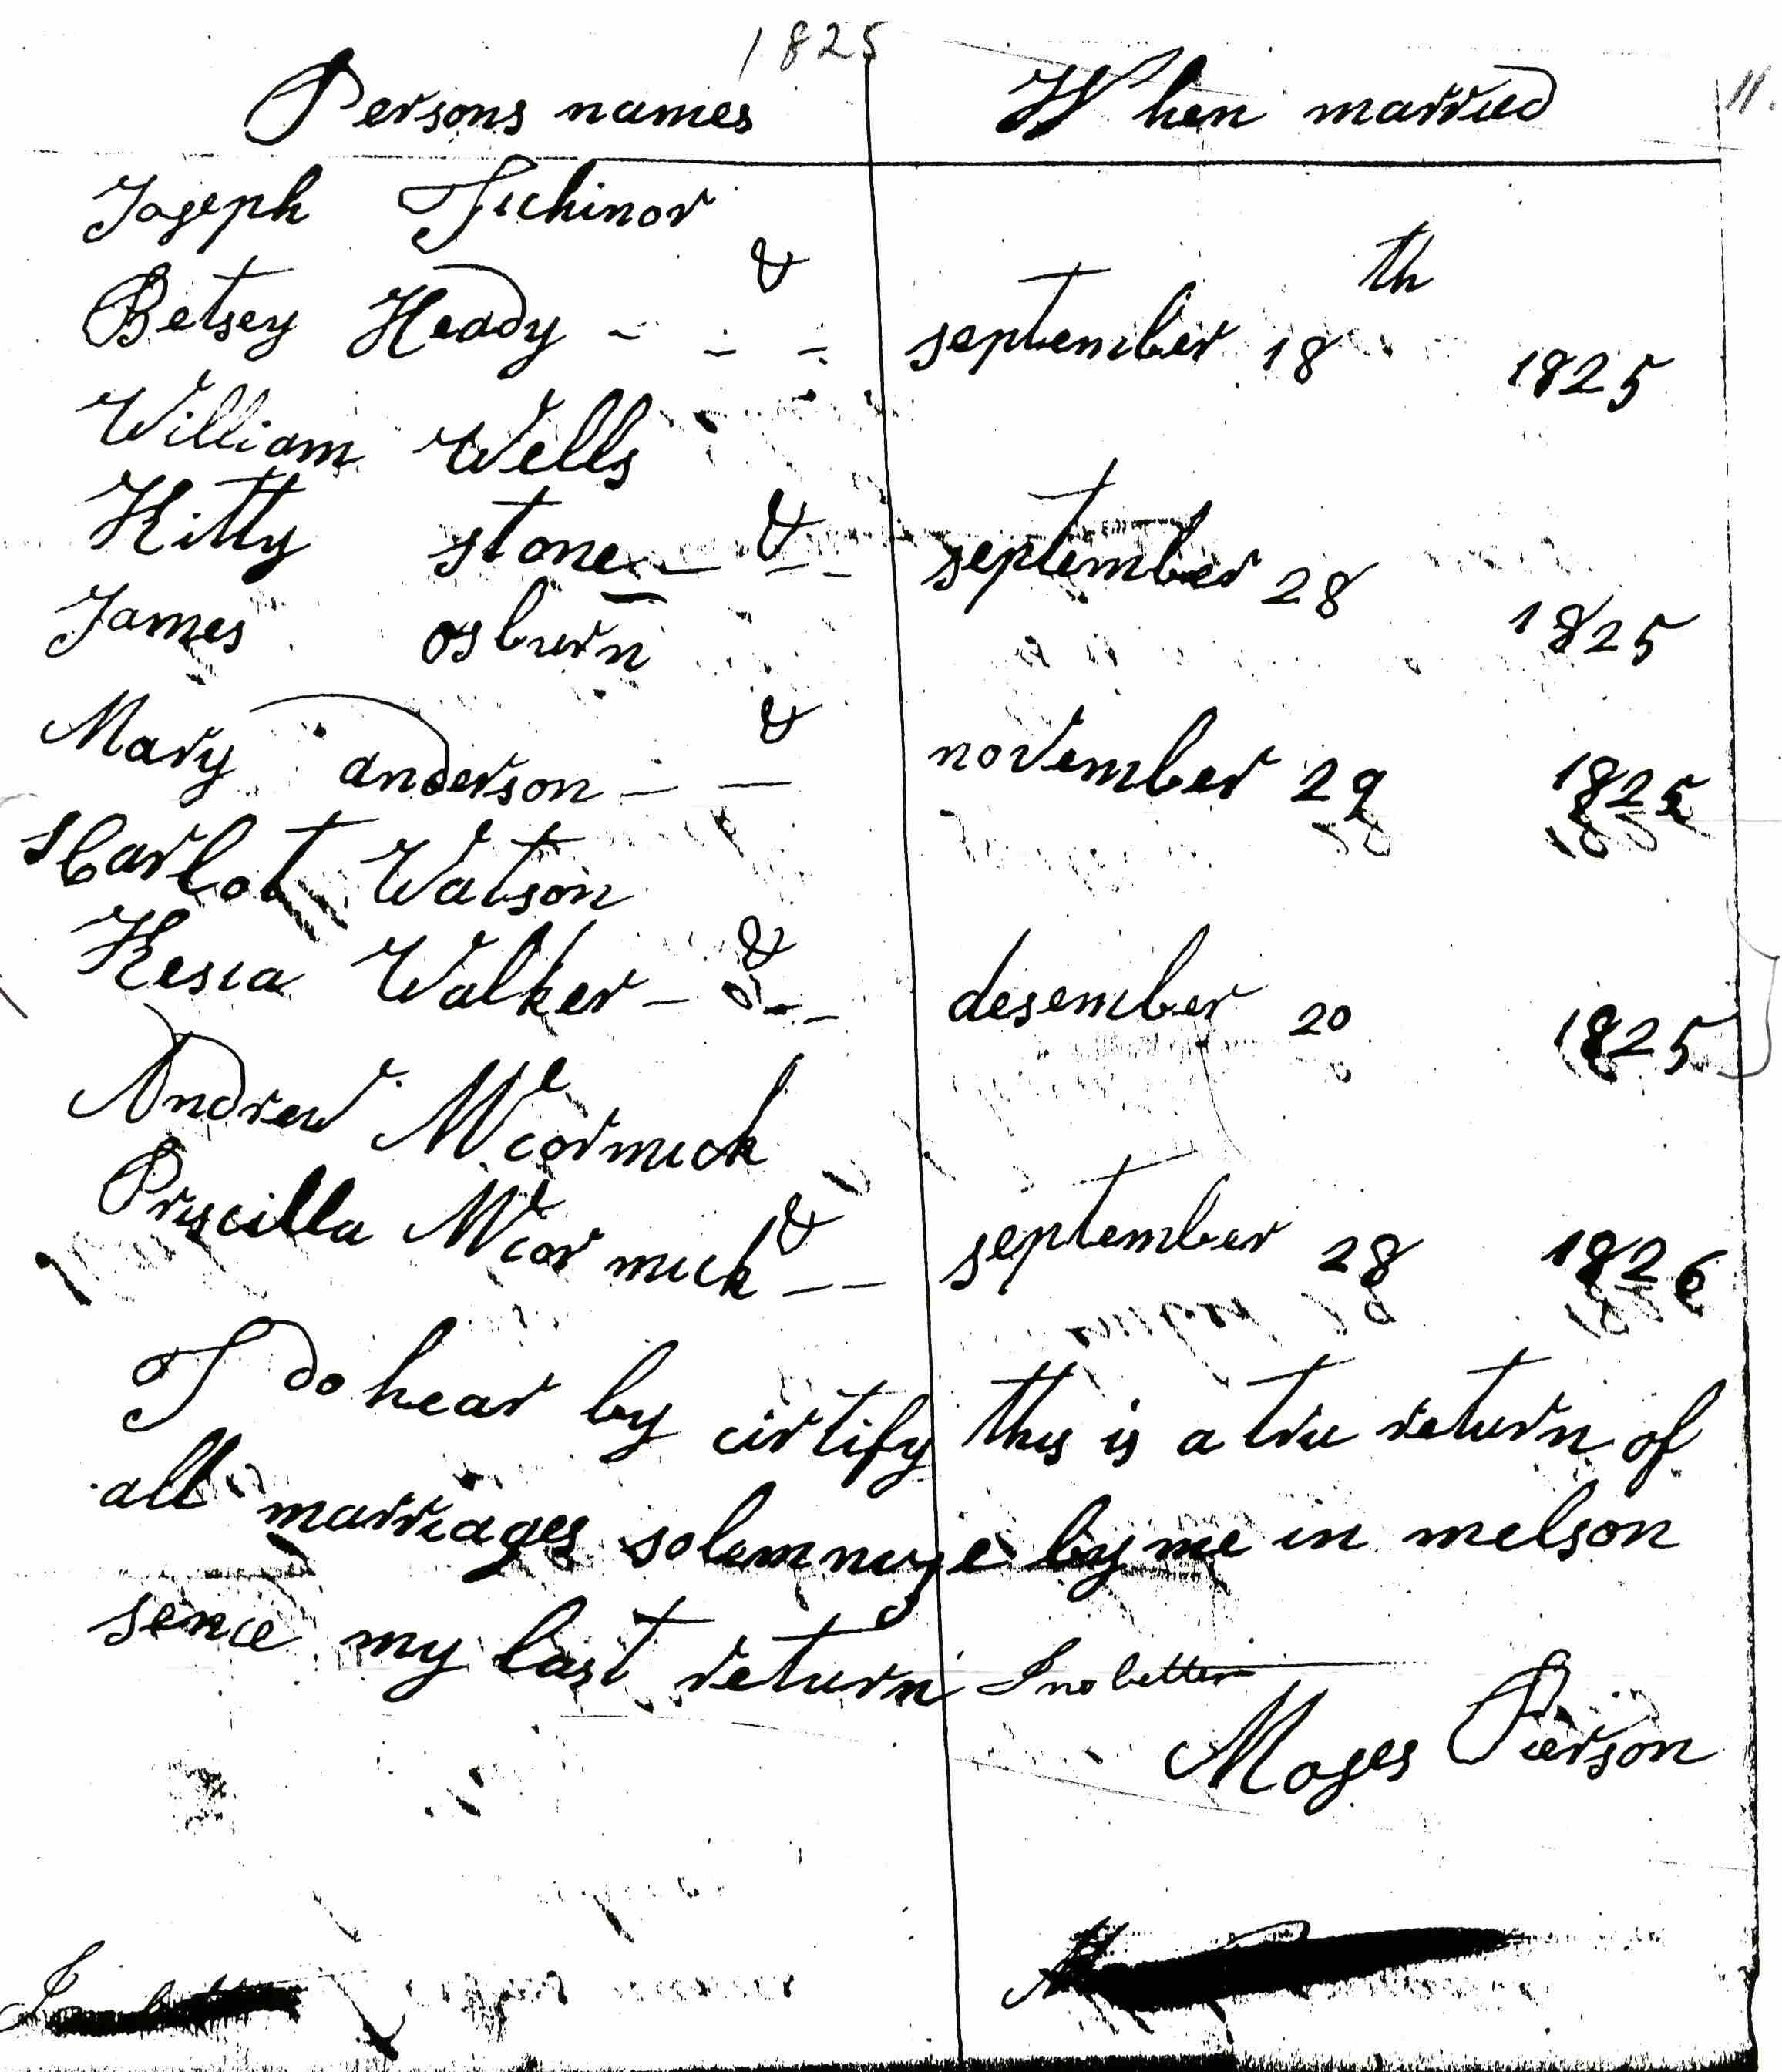 1825
Persons names When married 11.
Joseph Tichinor
&
Betsey Heady - - - september 18th 1825
William Wells
&
Kitty stone - - - september 28 1825
James osburn
&
Mary anderson - - november 29 1825
Watson
&
Kesia Walker - - - desember 20 1825
Andrew Mccormick
&
Priscilla Mccor mick - - september 28 1826
I do hear by cirtify this is a tru return of
all marriages solemnize by me in melson
sence my last return
Moses Pierson